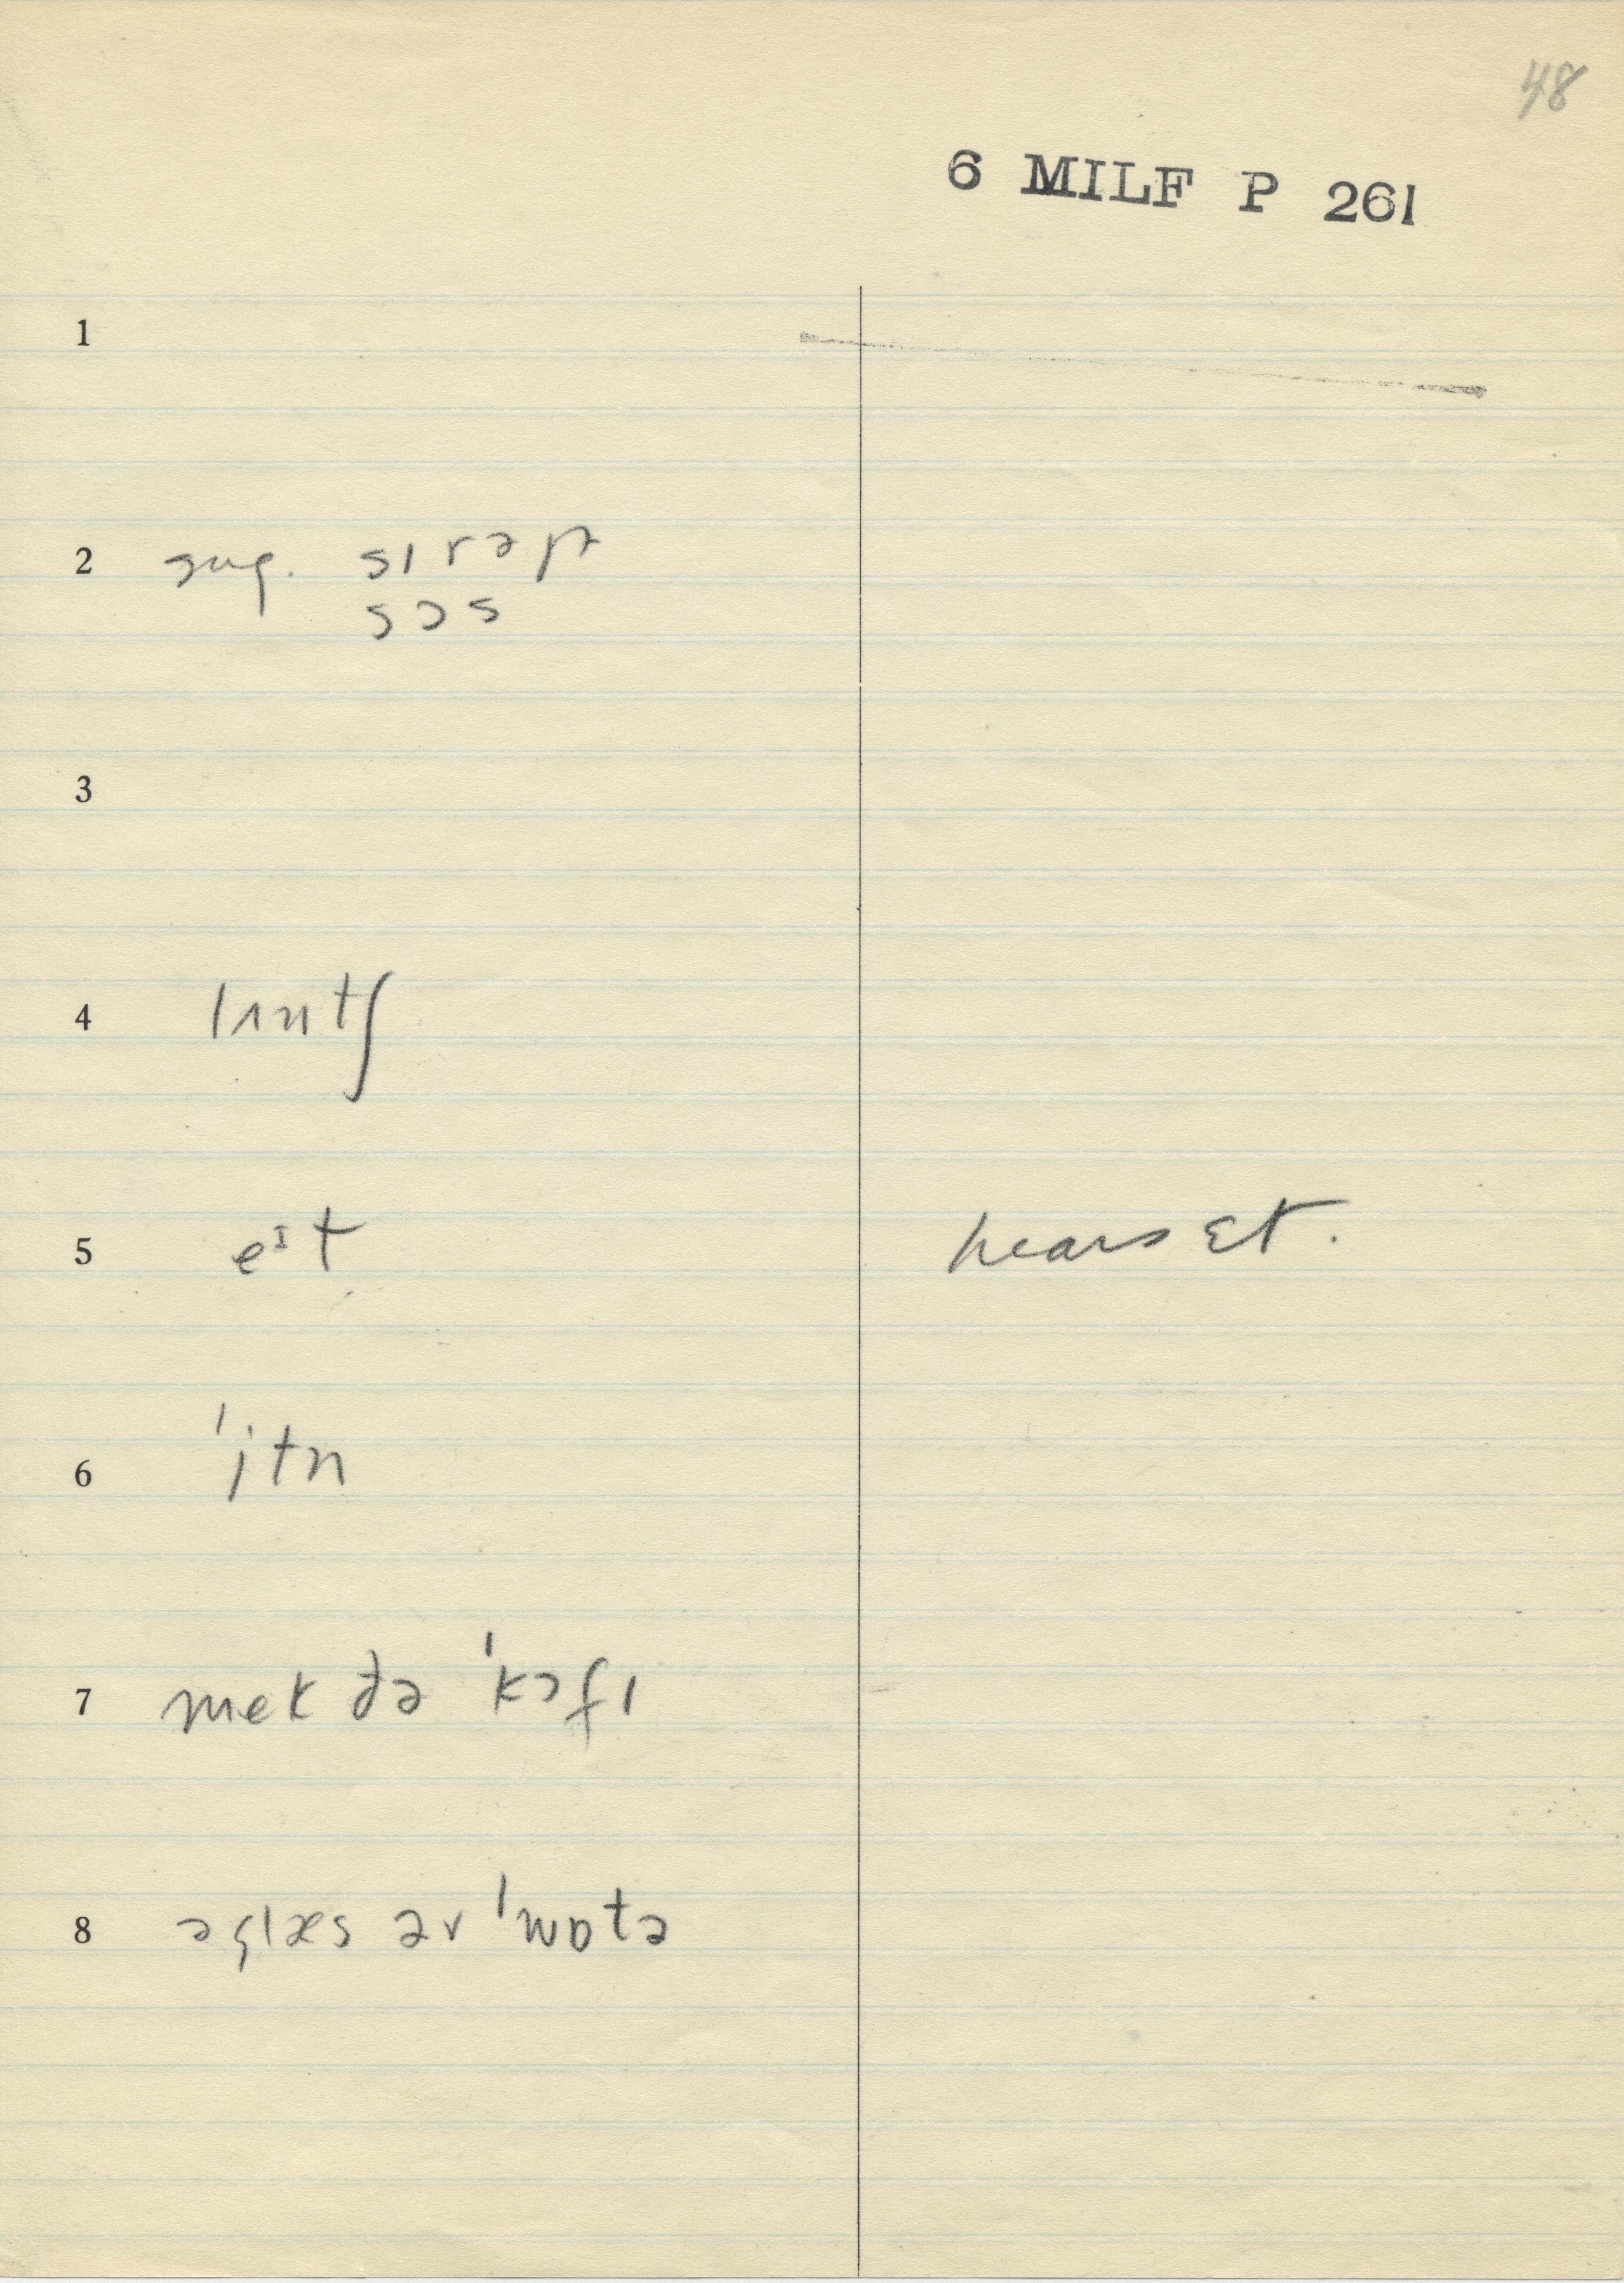 48
6 MILF P 261
1
2 sug. sırəp
sɔs
3
4 lʌntʃ
5 eᶦt hears ɛt.
6 ˈitn
7 mek ðə ˈkɔfı
8 ə glæs əv ˈwɒtə